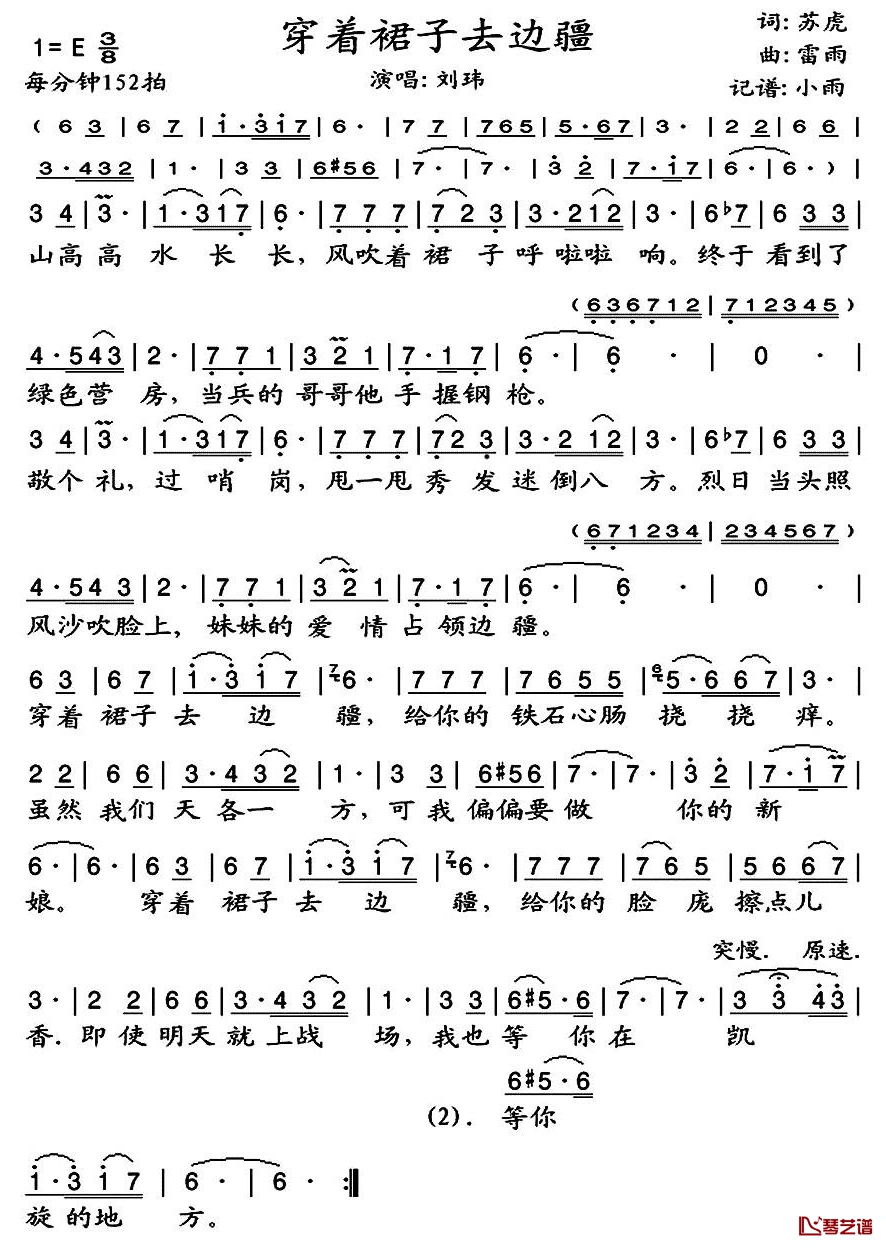 穿着裙子去边疆
1= E 3/8
每分钟152拍
演唱: 刘玮
词: 苏虎
曲: 雷雨
记谱: 小雨
( 6 3 | 6 7 | 1·317 | 6· | 7 7 | 765 | 5·67 | 3· | 2 2 | 6 6 |
3·432 | 1· | 3 3 | 6#56 | 7· | 7· | 3 2 | 7·17 | 6· | 6· ) |
3 4 | 3· | 1·317 | 6· | 7 7 7 | 7 2 3 | 3·212 | 3· | 6b7 | 6 3 3 |
山高高水长长，风吹着裙子呼啦啦响。终于看到了
( 636712 | 712345 )
4·543 | 2· | 7 7 1 | 3 2 1 | 7·17 | 6· | 6· | 0· |
绿色营房，当兵的哥哥他手握钢枪。
3 4 | 3· | 1·317 | 6· | 7 7 7 | 7 2 3 | 3·2 12 | 3· | 6b7 | 6 3 3 |
敬个礼，过哨岗，甩一甩秀发迷倒八方。烈日当头照
( 671234 | 234567 )
4·54 3 | 2· | 7 7 1 | 3 2 1 | 7·1 7 | 6· | 6· | 0· |
风沙吹脸上，妹妹的爱情占领边疆。
6 3 | 6 7 | 1·3 1 7 | 7 6· | 777 | 7 6 5 5 | 6 5·6 6 7 | 3· |
穿着裙子去边疆，给你的铁石心肠挠挠痒。
2 2 | 6 6 | 3·4 3 2 | 1· | 3 3 | 6#56 | 7· | 7· | 3 2 | 7·1 7 |
虽然我们天各一方，可我偏偏要做你的新
6· | 6· | 6 3 | 6 7 | 1·3 1 7 | 7 6· | 7 7 7 | 7 6 5 | 5 6 6 7 |
娘。穿着裙子去边疆，给你的脸庞擦点儿
突慢. 原速.
3· | 2 2 | 6 6 | 3·4 3 2 | 1· | 3 3 | 6#5·6 | 7· | 7· | 3 3 4 3 |
香. 即使明天就上战场，我也等你在凯
6#5·6
(2). 等你
1·3 1 7 | 6· | 6· :|
旋的地方。
琴艺谱